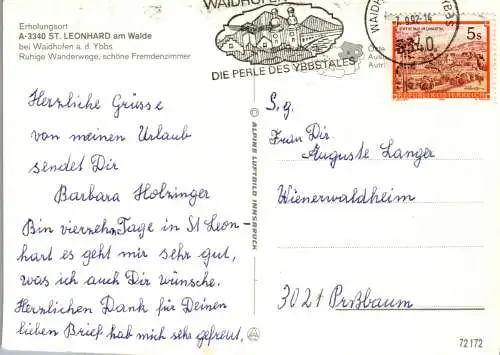 Erholungsort
A-3340 ST. LEONHARD am Walde
bei Waidhofen a. d. Ybbs
Ruhige Wanderwege, schöne Fremdenzimmer
Herzliche Grüsse
von meinen Urlaub
sendet Dir
Barbara Holzinger
Bin vierzehn Tage in St Leon-
hart es geht mir sehr gut,
was ich auch Dir wünsche.
Herzlichen Dank für Deinen
lieben Brief hab mich sehr gefreut.
© ALPINE LUFTBILD INNSBRUCK
DIE PERLE DES YBBSTALES
3340
5s
REPUBLIK ÖSTERREICH
S.g.
Frau Dir.
Auguste Langer
Wienerwaldheim
3021 Preßbaum
72172